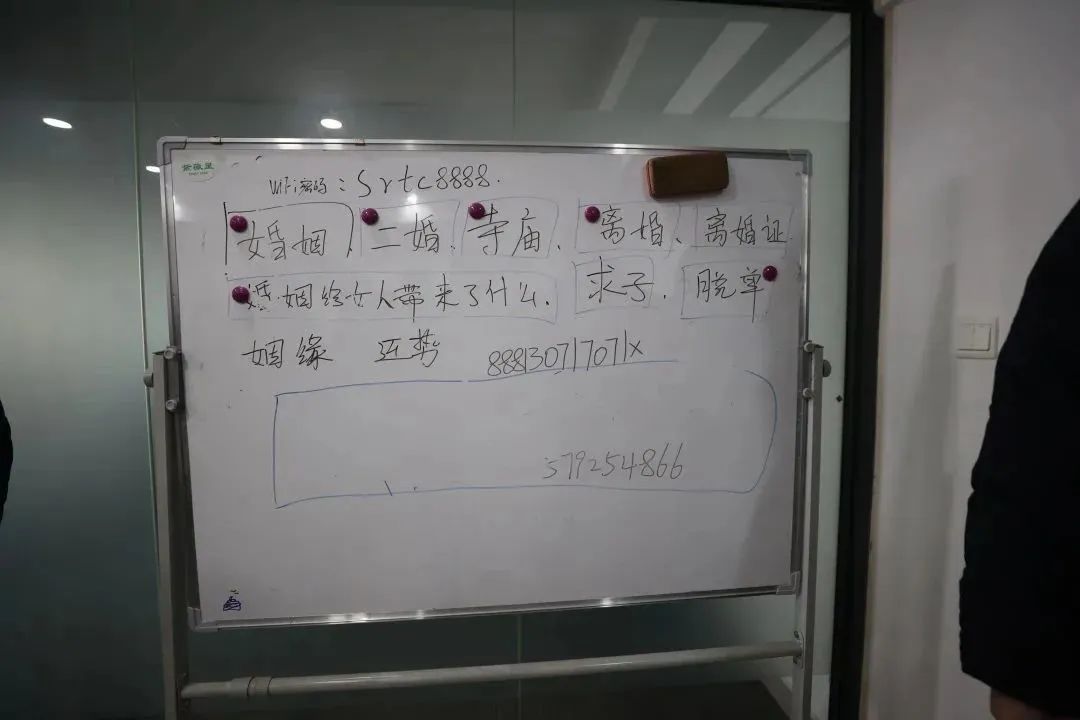 紫微星
WiFi密码：Srtc8888.
女婚姻、二婚、寺庙、离婚、离婚证
婚姻给女人带来了什么、求子、脱单
姻缘 运势 888130717071x
579254866